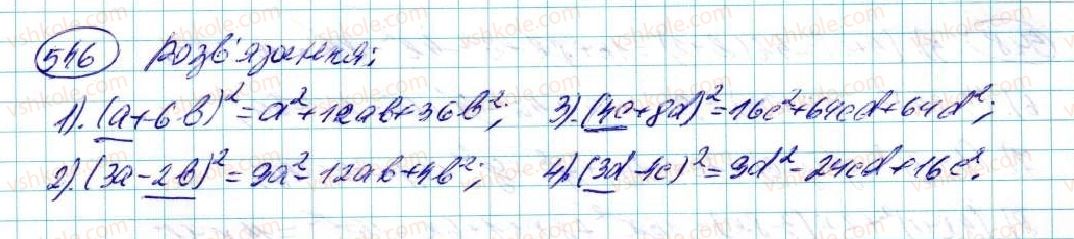 546 Розв'язання:
1). (a+6b)²=a²+12ab+36b²; 3). (4c+8d)²=16c²+64cd+64d²;
2). (3a-2b)²=9a²-12ab+4b²; 4). (3d-4c)²=9d²-24cd+16c².